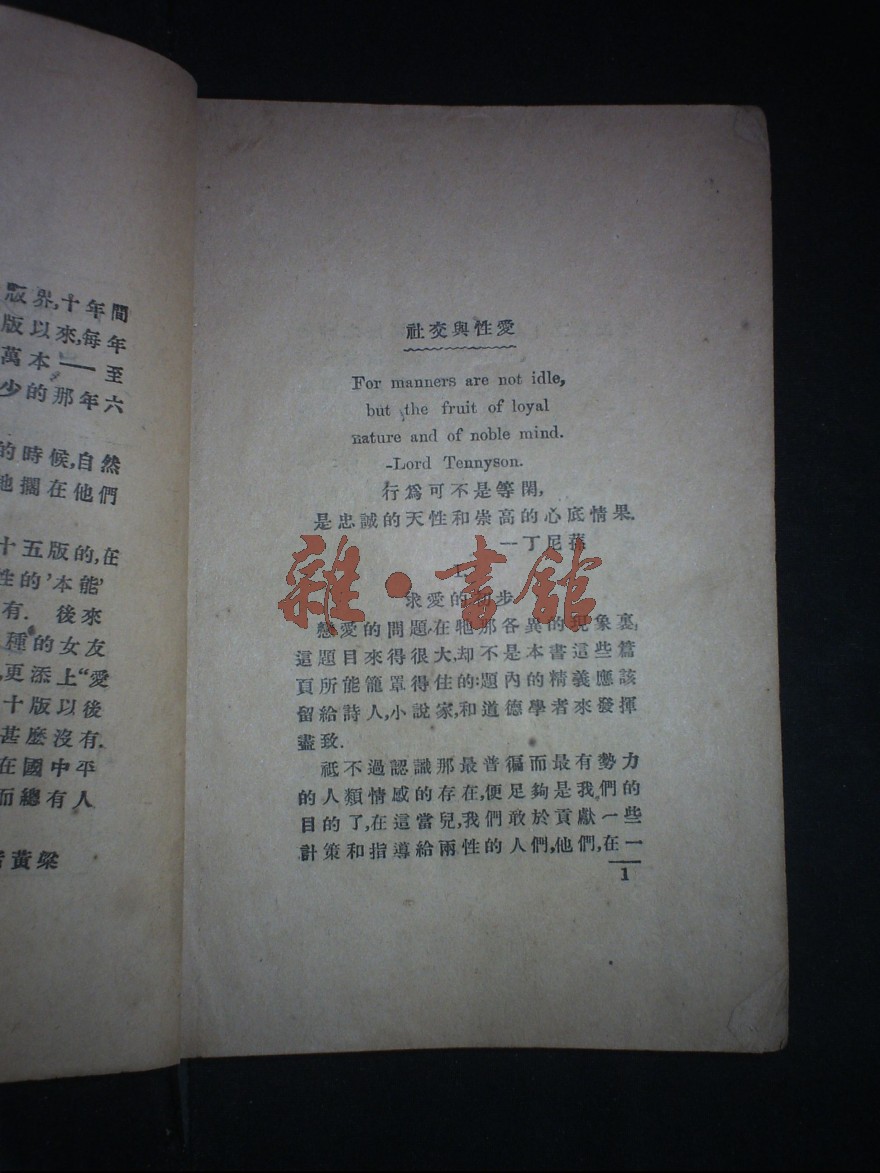 版界,十年間
版以來,每年
萬本——至
少的那年六
的時候,自然
地擱在他們
十五版的,在
性的'本能'
有. 後來
種的女友
,更添上“愛
十版以後
甚麼沒有.
在國中平
而總有人
黃梁
社交與性愛
For manners are not idle,
but the fruit of loyal
nature and of noble mind.
-Lord Tennyson.
行爲可不是等閑,
是忠誠的天性和崇高的心底情果.
—丁尼
求愛的初步
戀愛的問題,在牠那各異的現象裏,
這題目來得很大,却不是本書這些篇
頁所能籠罩得住的:題內的精義應該
留給詩人,小說家,和道德學者來發揮
盡致.
祇不過認識那最普徧而最有勢力
的人類情感的存在,便足夠是我們的
目的了,在這當兒,我們敢於貢獻一些
計策和指導給兩性的人們,他們,在一
1
雜·書館